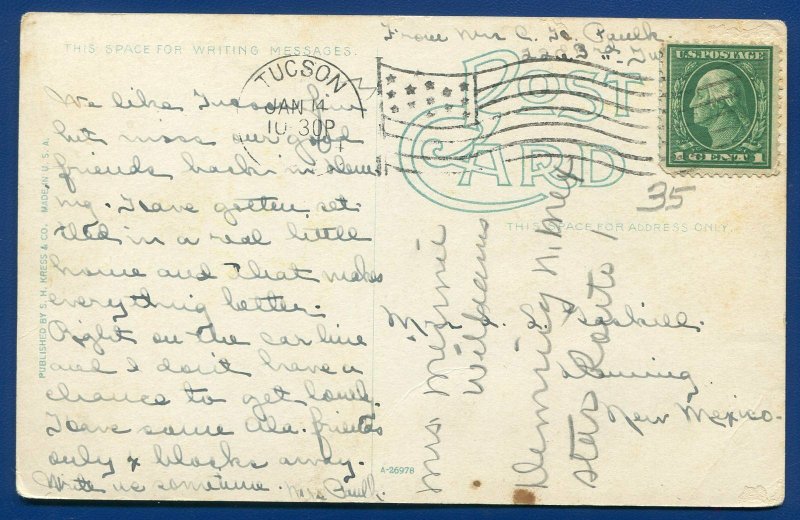 THIS SPACE FOR WRITING MESSAGES.
We like Tucson fine
but miss our good
friends back in Dem
ing. Have gotten set
tled in a real little
home and that makes
everything better.
Right on the car line
and I don't have a
chance to get lonely.
Have some Ala. friends
only blocks away.
Write us sometime. Mrs Paulk.
PUBLISHED BY S. H. KRESS & CO. MADE IN U. S. A.
From Mrs C. Paulk
3rd
TUCSON
JAN 14
10 30P
U.S. POSTAGE
1 CENT 1
POST CARD
35
THIS SPACE FOR ADDRESS ONLY.
L. Gaskill.
Deming
New Mexico.
Mrs. Minnie
Williams
Deming N. Mex
Star Route 1
A-26978